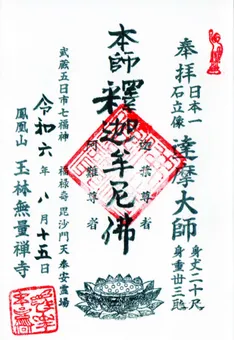 奉拝
日本一
石立像
達摩大師
身丈二十尺
身重廿三瓲
本師釋迦牟尼佛
迦葉尊者
阿難尊者
武蔵五日市七福神
福禄寿毘沙門天奉安霊場
令和六年八月十五日
鳳凰山
玉林無量禅寺